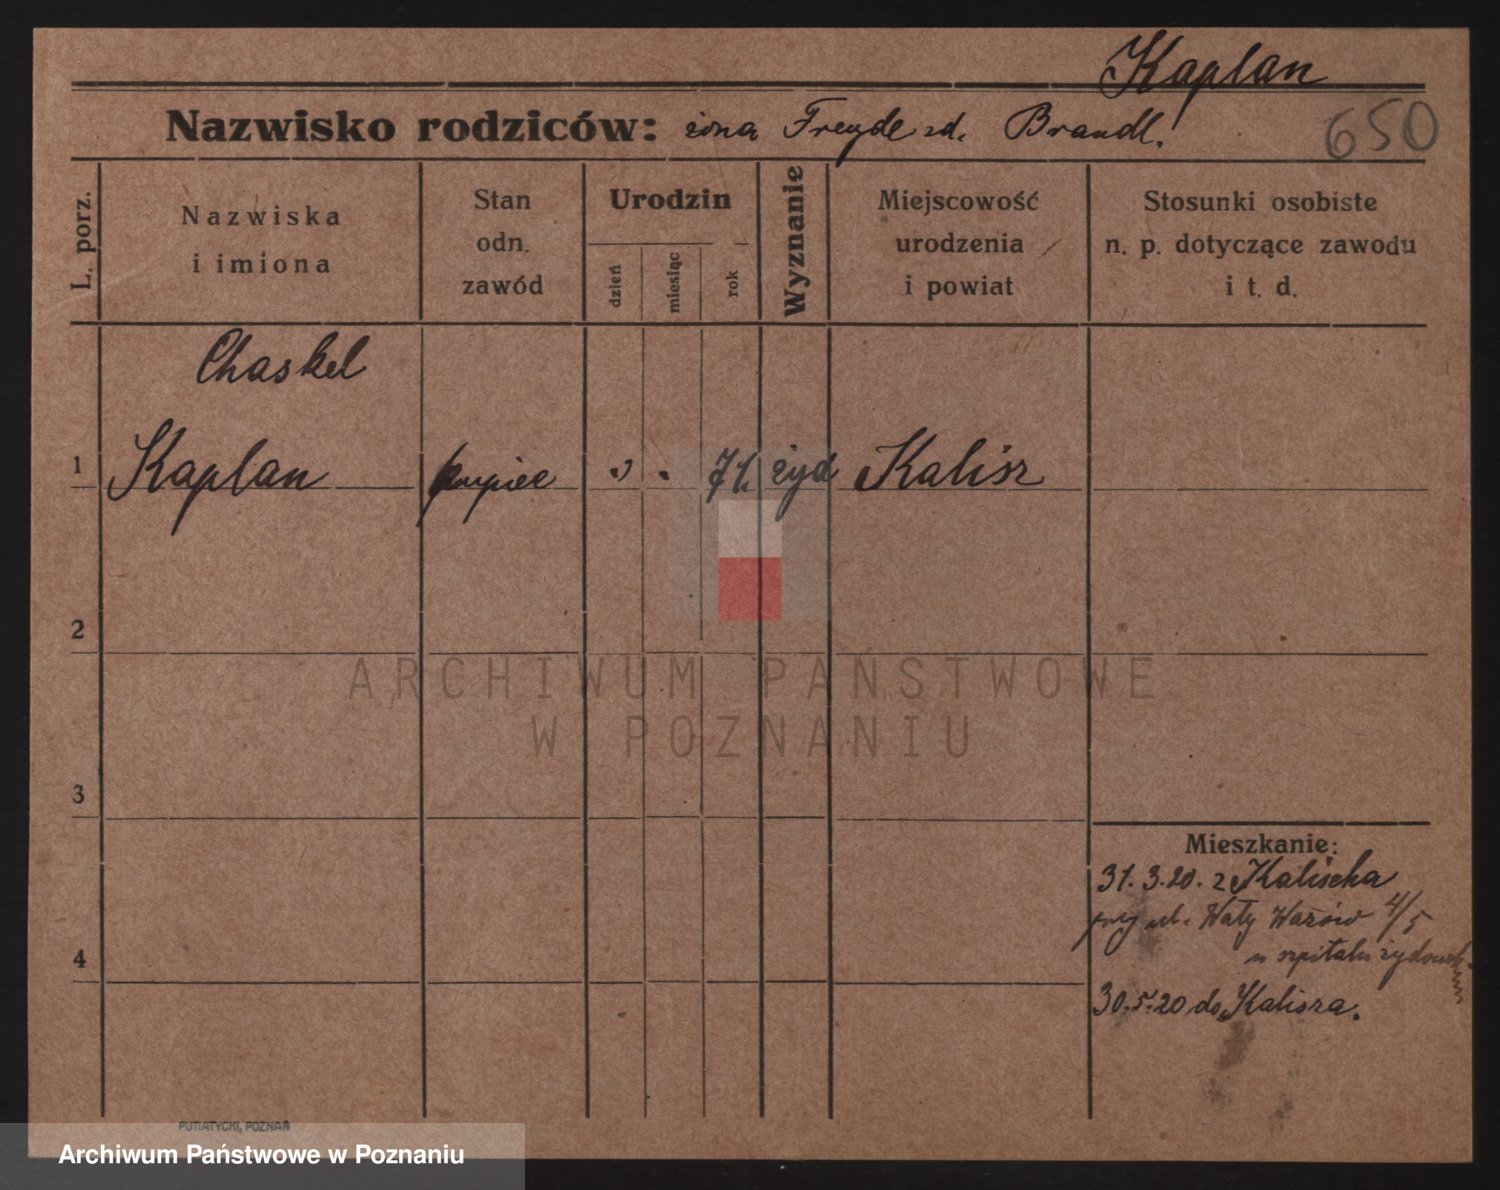 Kaplan
Nazwisko rodziców: żona Freyde zd. Brandl.
650
L. porz.
Nazwiska
i imiona
Stan
odn.
zawód
Urodzin
dzień
miesiąc
rok
Wyznanie
Miejscowość
urodzenia
i powiat
Stosunki osobiste
n. p. dotyczące zawodu
i t. d.
Chaskel
1 Kaplan kupiec 71. żyd Kalisz
2
ARCHIWUM PAŃSTWOWE
W POZNANIU
3
Mieszkanie:
31. 3. 20. z Kalischa
przy ul. Wały 4/5
w szpitalu żydowsk.
4
30. 5. 20 do Kalisza.
PUTIATYCKI, POZNAŃ
Archiwum Państwowe w Poznaniu